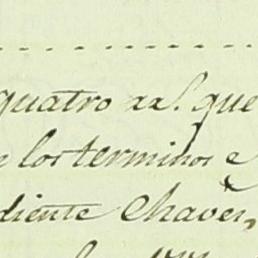 quatro rs. que
los terminos e
diente Chaves,